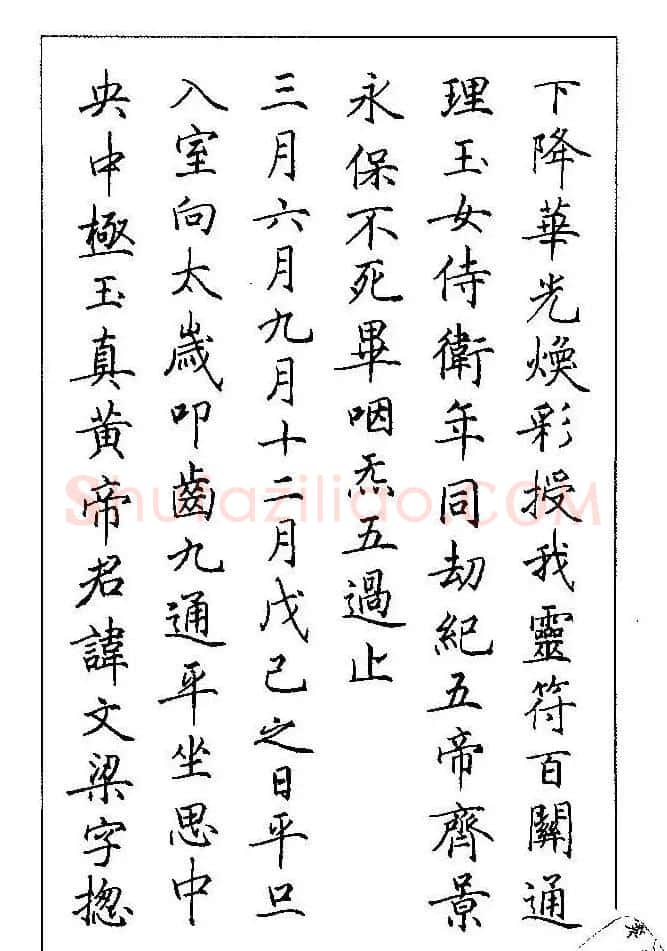 下降華光煥彩授我靈符百關通
理玉女侍衛年同劫紀五帝齊景
永保不死畢咽炁五過止
三月六月九月十二月戊己之日平旦
入室向太歲叩齒九通平坐思中
央中極玉真黃帝君諱文梁字揔
Shufaziliao.COM